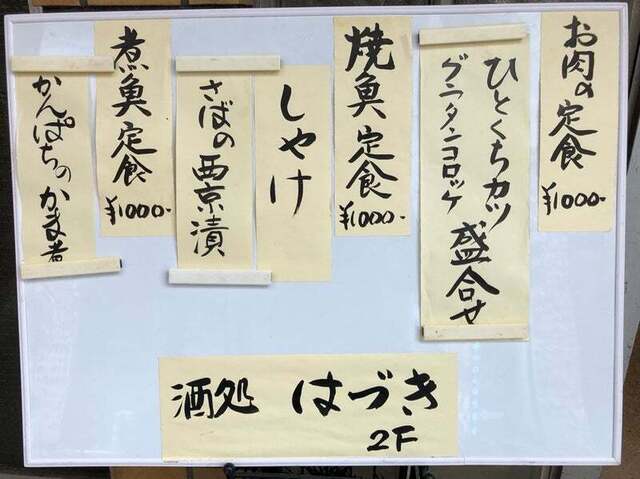 お肉の定食
¥1000-
ひとくちカツ
グラタンコロッケ
盛合せ
焼魚定食
¥1000-
しゃけ
さばの西京漬
煮魚定食
¥1000-
かんぱちのかま煮
酒処 はづき
2F